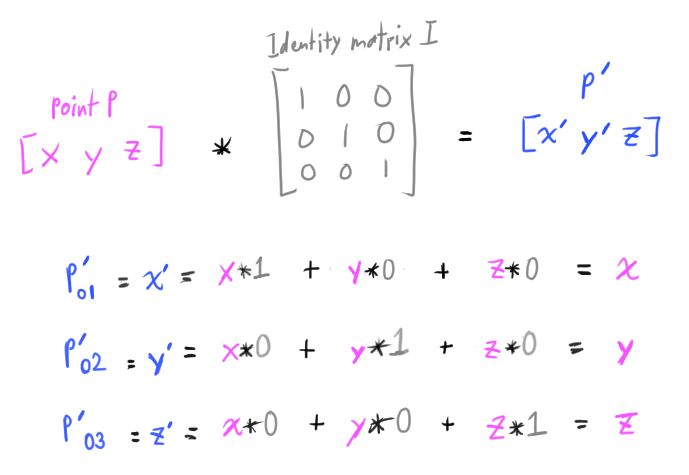 Identity matrix I
point P
P′
[x y z] * [1 0 0
0 1 0
0 0 1] = [x′ y′ z]
P′01 = x′ = x*1 + y*0 + z*0 = x
P′02 = y′ = x*0 + y*1 + z*0 = y
P′03 = z′ = x*0 + y*0 + z*1 = z